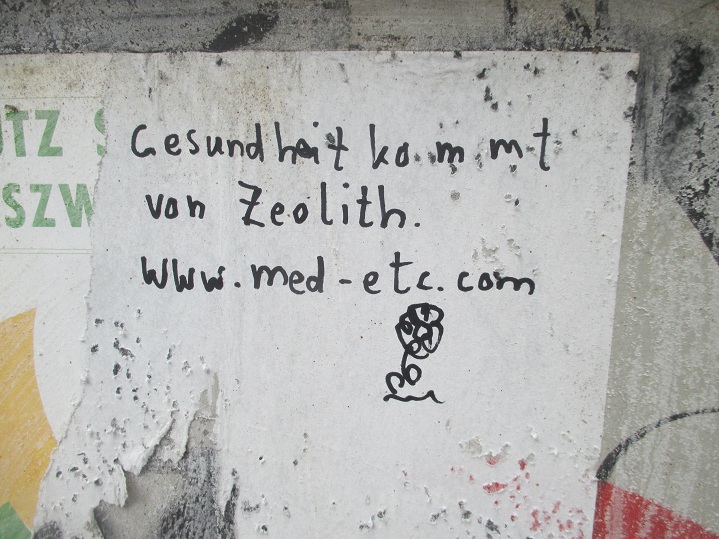 UTZ S
SZW
Gesundheit kommt
von Zeolith.
www.med-etc.com